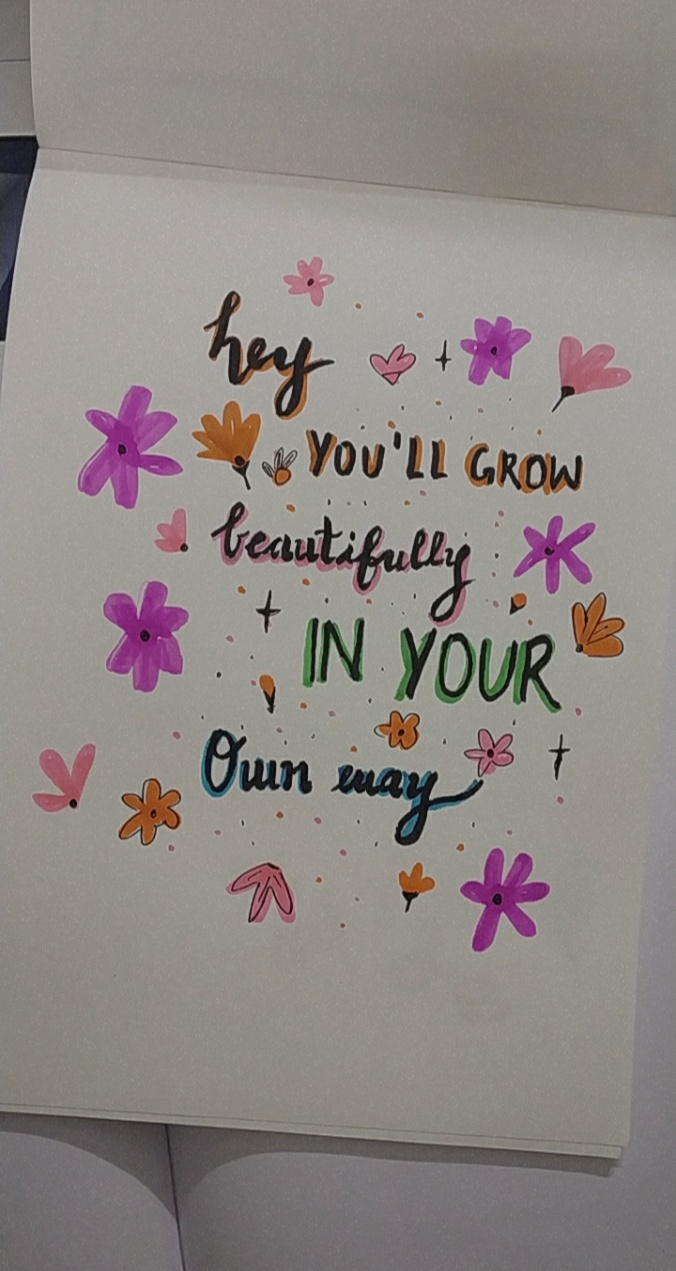 hey
YOU'LL GROW
beautifully
IN YOUR
Own way